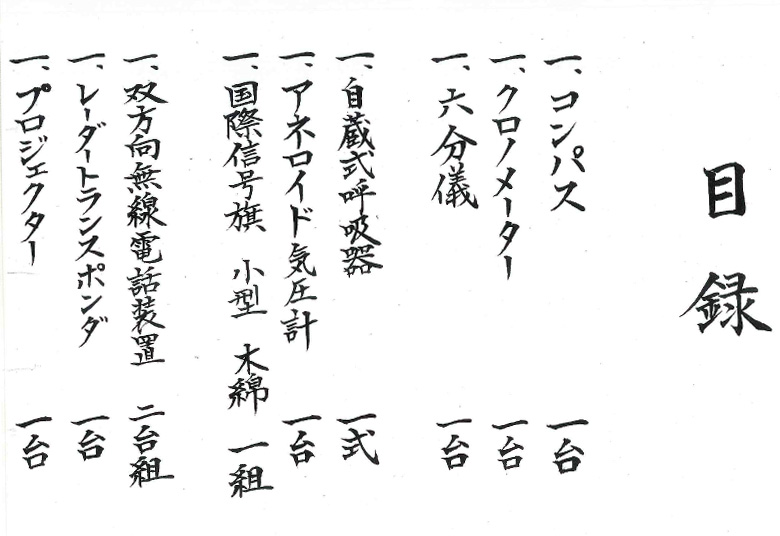 目録
一、コンパス 一台
一、クロノメーター 一台
一、六分儀 一台
一、自蔵式呼吸器 一式
一、アネロイド気圧計 一台
一、国際信号旗 小型 木綿 一組
一、双方向無線電話装置 二台組
一、レーダートランスポンダ 一台
一、プロジェクター 一台